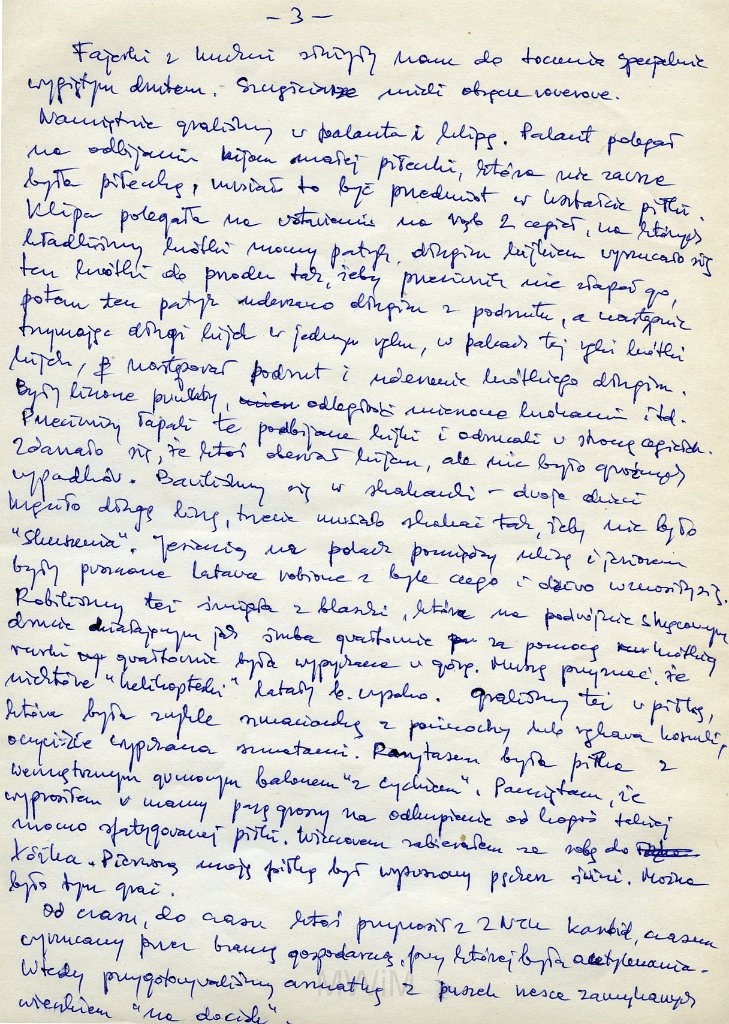 - 3 -
Fajerki z kuchni służyły nam do toczenia specjalnie
wygiętym drutem. Szczęściarze mieli obręcze rowerowe.
Namiętnie graliśmy w palanta i klipę. Palant polegał
na odbijaniu kijem małej piłeczki, która nie zawsze
była piłeczką, musiał to być przedmiot w kształcie piłki.
Klipa polegała na ustawieniu na rąb 2 cegieł, na których
kładliśmy krótki mocny patyk, drugim kijkiem wyrzucało się
ten krótki do przodu tak, żeby przeciwnik nie złapał go,
potem ten patyk uderzano drugim z podrzutu, a następnie
trzymając drugi kijek w jednym ręku, w palcach tej ręki krótki
kijek, następował podrzut i uderzenie krótkiego drugim.
Były liczone punkty, odległości mierzono krokami itd.
Przeciwnicy łapali te podbijane kijki i odrzucali w stronę cegiełek.
Zdarzało się, że ktoś oberwał kijem, ale nie było groźnych
wypadków. Bawiliśmy się w skakanki - dwoje dzieci
kręciło długą liną, trzecie musiało skakać tak, żeby nie było
"skuszenia". Jesienią na polach pomiędzy ulicą i jeziorem
były puszczane latawce robione z byle czego i dziwo wznosiły się.
Robiliśmy też śmigła z blaszki, które na podwójnie skręconym
drucie działającym jak śruba gwałtownie za pomocą krótkiej
rurki gwałtownie była wypychana w górę. Muszę przyznać, że
niektóre "helikopterki" latały b. wysoko. Graliśmy też w piłkę,
która była zwykle szmacianką z pończochy lub rękawa koszuli,
oczywiście wypchana szmatami. Rarytasem była piłka z
wewnętrznym gumowym balonem "z cyckiem". Pamiętam, że
wyprosiłem u mamy parę groszy na odkupienie od kogoś takiej
mocno sfatygowanej piłki. Wieczorem zabierałem ze sobą do
łóżka. Pierwszą moją piłką był wysuszony pęcherz świni. Można
było tym grać.
Od czasu, do czasu ktoś przynosił z ZNTK karbid, czasem
wyrzucany przez bramę gospodarczą, przy której była acetylenownia.
Wtedy przygotowywaliśmy armatkę z puszek nesca zamykanych
wieczkiem "na docisk".
MWiM